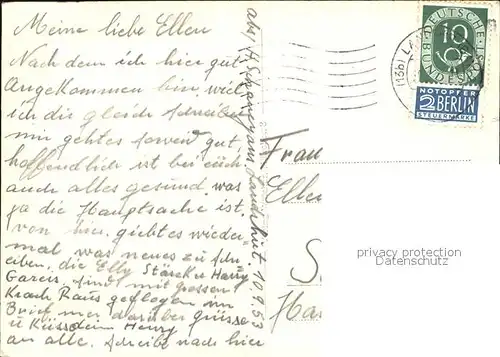 Meine liebe Ellen
Nach dem ich hier gut
Angekommen bin, will
ich dir gleich schreiben
mir gehtes soweit gut
hoffendlich ist bei euch
auch alles gesund was
ja die Hauptsache ist.
von hier giebtes wieder
mal was neues zu schr
eiben. die Elly Stärck u Harry
sind mit grossen
Krach Raus geflogen im
Brief mer darüber grüsse
u Küsse dein Henry
an alle. schreibe nach hier
Landshut. 10.9.53
Frau
Ellen
S
Ha
DEUTSCHE
BU
10
(13b) LANDSHUT
NOTOPFER
2 BERLIN
STEUERMARKE
privacy protection
Datenschutz